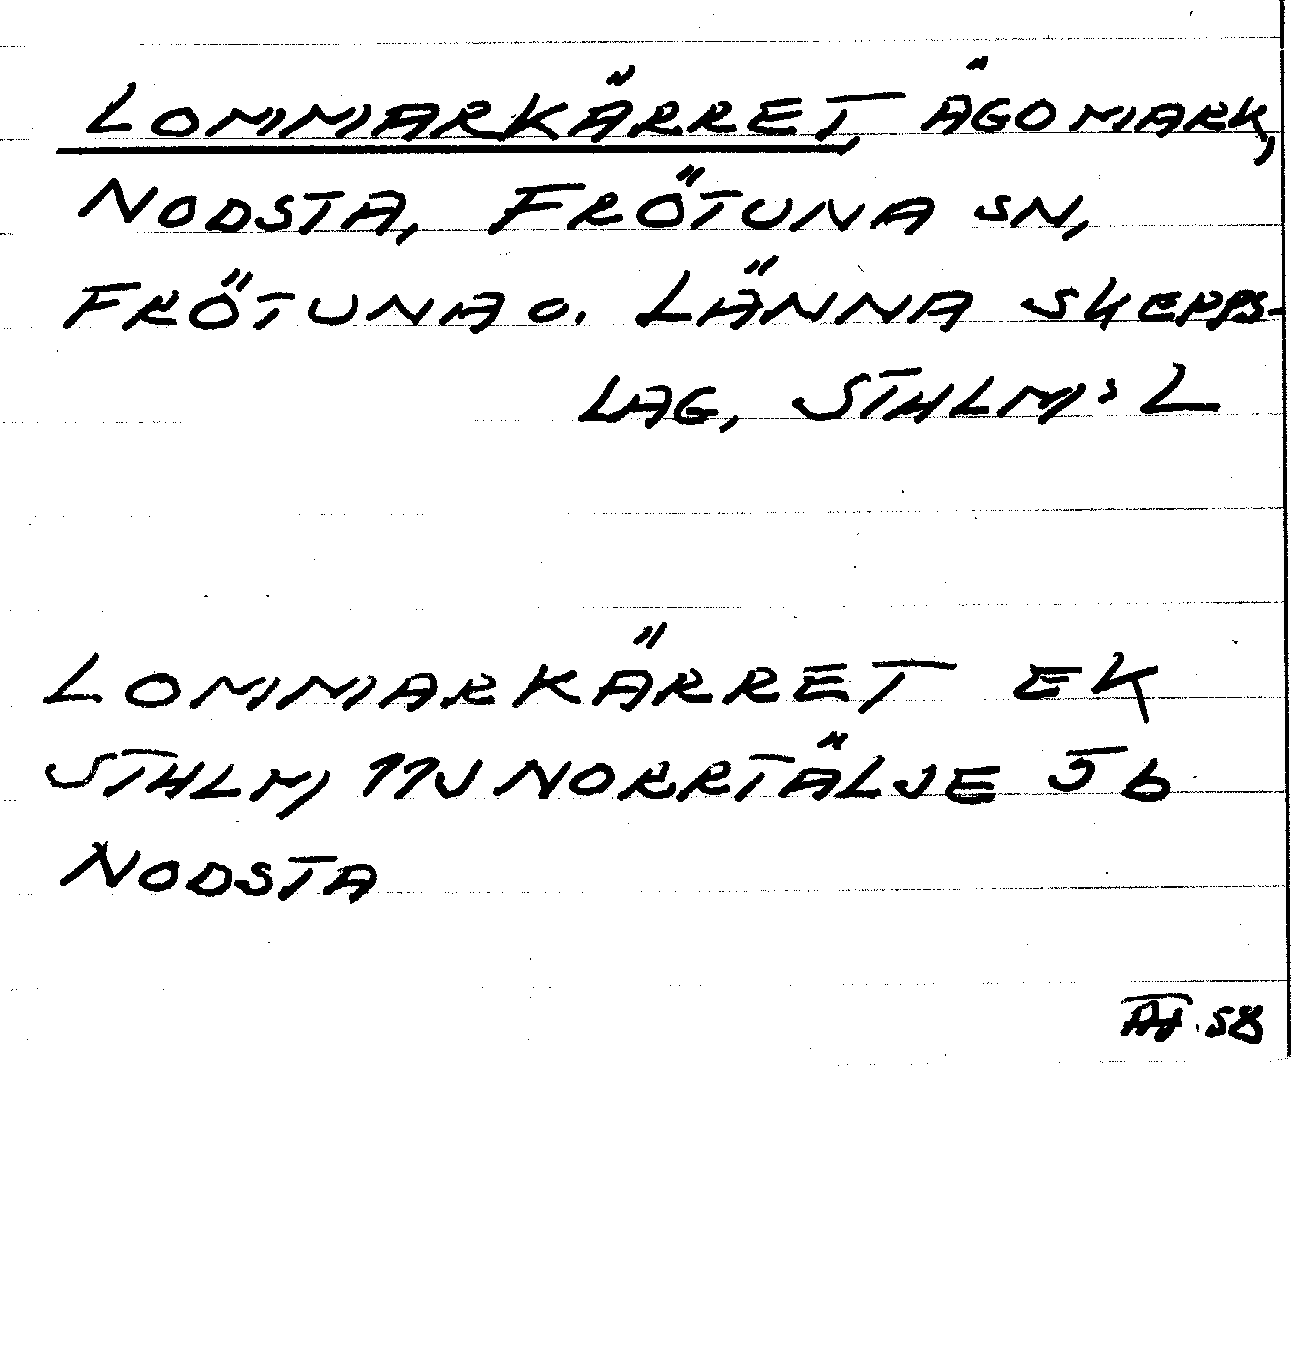 LOMMARKÄRRET, ÄGOMARK,
NODSTA, FRÖTUNA SN,
FRÖTUNA O. LÄNNA SKEPPS-
LAG, STHLM:S L
LOMMARKÄRRET EK
STHLM, 11J NORRTÄLJE 5b
NODSTA
58